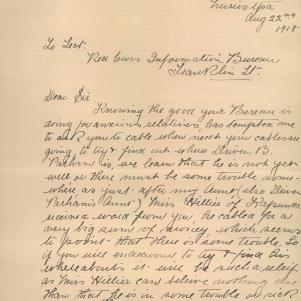 Aug 22nd
1918
To Sect:
Red Cross Information Bureau
Franklin St.
Dear Sir
Knowing the good your Bereau is
doing for anxious relatives, has tempted me
to ask you to cable when next your cables are
going to try & find out where Driver B.
is, we learn that he is not yet
well or there must be some trouble some-
where as just after my Aunt (also Driver
Aunt) Miss Hillier of
received word from you, he cabled for a
very big sum of money which seems
to point that there is some trouble. So
if you will endeavour to try & find his
whereabouts it will be such a relief
as Miss Hillier can believe nothing else
than that he is in some trouble or sick